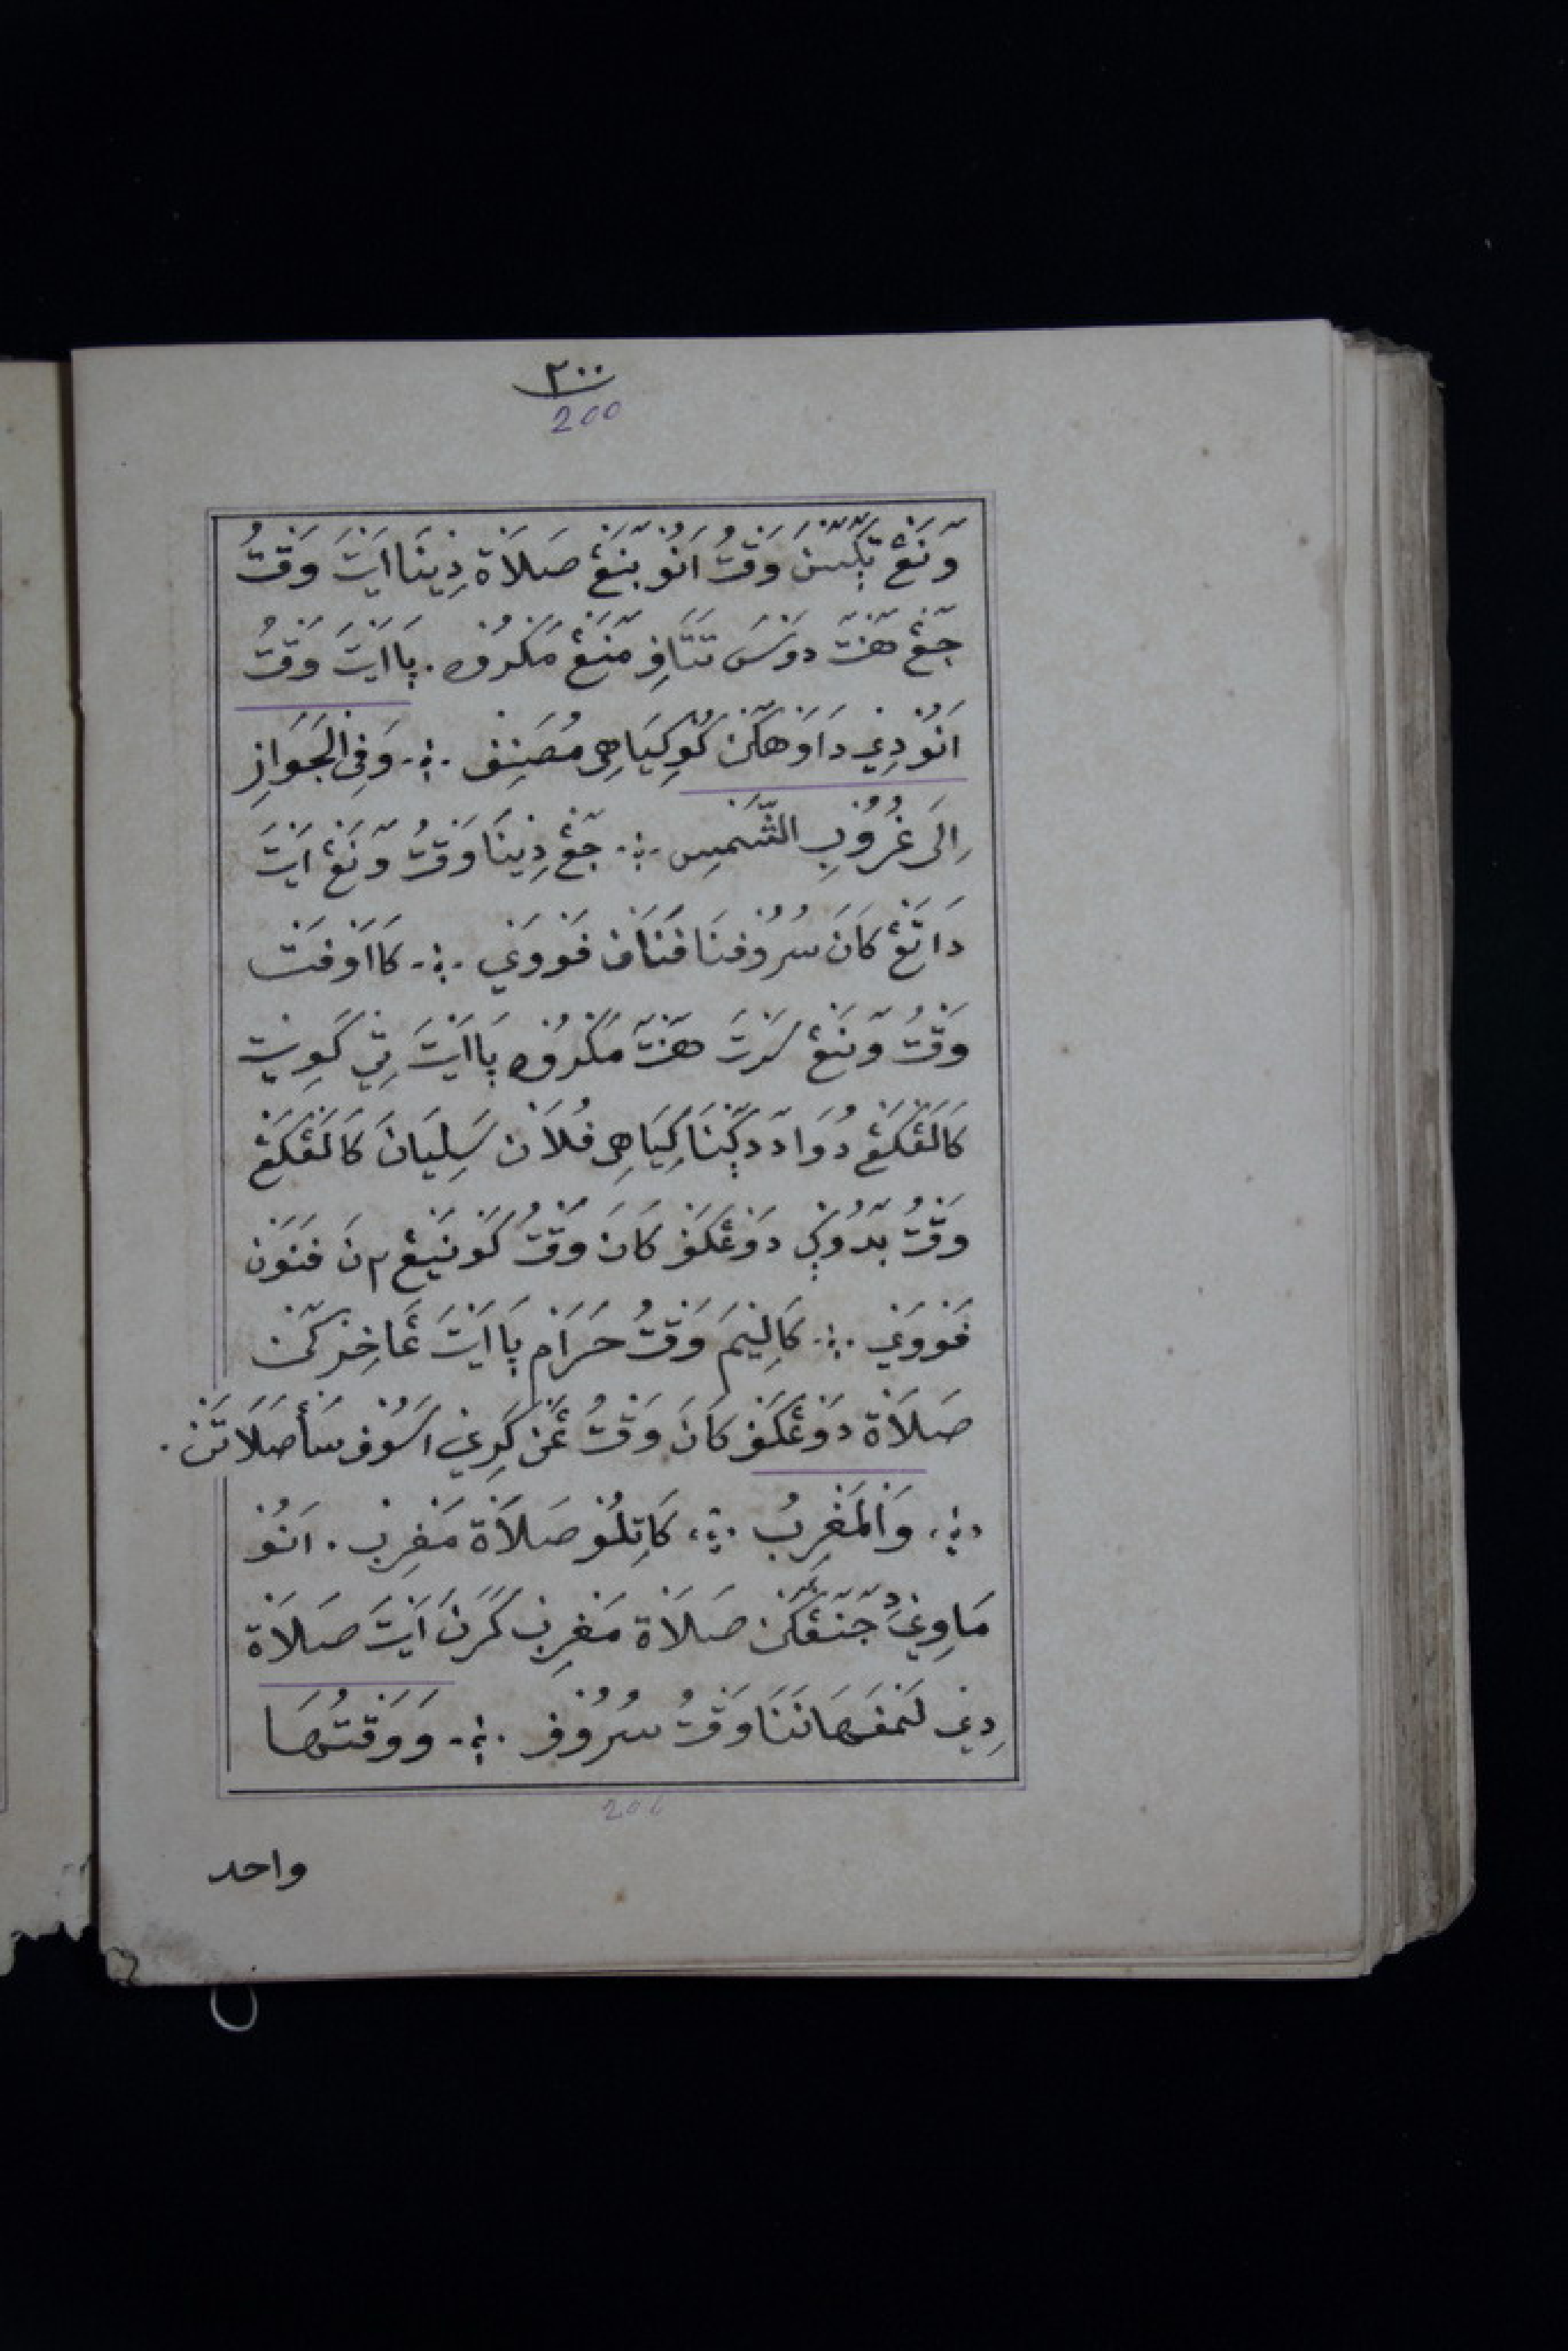 ٢٠٠
200
وَنَڠْ تٓكَࣤسَنْ وَقْتُ اَنُوْ بٓنَڠْ صَلَاةْ دِيْنَا اَيْتَ وَقْتُ
جٓڠْ هٓنْتَ دوسَ تتَافِ مٓنَڠْ مَكْرُوْه . بٓا اَيْتَ وَقْتُ
اَنُوْ دِيْ دَاوَهَكٓنْ كُوْ كِيَاهِى مُصَنِفْ ؞ وَفِى الْجَوَازِ
اِلَى غُرُوْبِ الشَّمْسِ ؞ جٓڠْ دِيْنَا وَقْتُ وٓنَڠْ اَيْتَ
دَاتَڠْ كَانَ سُرُوْفْنَا فَنَافْ فَوْوَيْ ؞ كَااَوْفَتْ
وَقْتُ وٓنَڠْ سَرْتَ هٓنْتَ مَكْرُوْه بٓا اَيْتَ تِيْ كَوِيْتْ
كَالَڠْكَڠْ دُوَا دٓدٓكِنَا كِيَاهِى فُلَانْ سَلِيَانَ كَالَڠْكَڠْ
وَقْتُ بَدُوْكِ دَوْڠْكَفْ كَانَ وَقْتُ كَوْنَيْڠْ ٢ نَ فَنَوْنْ
فَوْوَيْ ؞ كَالِيْمَ وَقْتُ حَرَامْ بٓا اَيْتَ ڠَاخِرْكٓنْ
صَلَاةْ دَوْڠْكَفْ كَانَ وَقْتُ ڠٓنْ كَرِيْ اَسُوْفْ سَأصَلَاتَنْ .
؞ وَالْمَغْرِبُ ؞ كَاتِلُوْ صَلَاةْ مَغْرِبْ . اَنُوْ
مَاوِيْ جٓنٓڠَنْ صَلَاةْ مَغْرِبْ كَرَنَ اَيْتَ صَلَاةْ
دِيْ لَمْفَهَانَنَا وَقْتُ سُرُوْفْ ؞ وَوَقْتُهَا
واحد